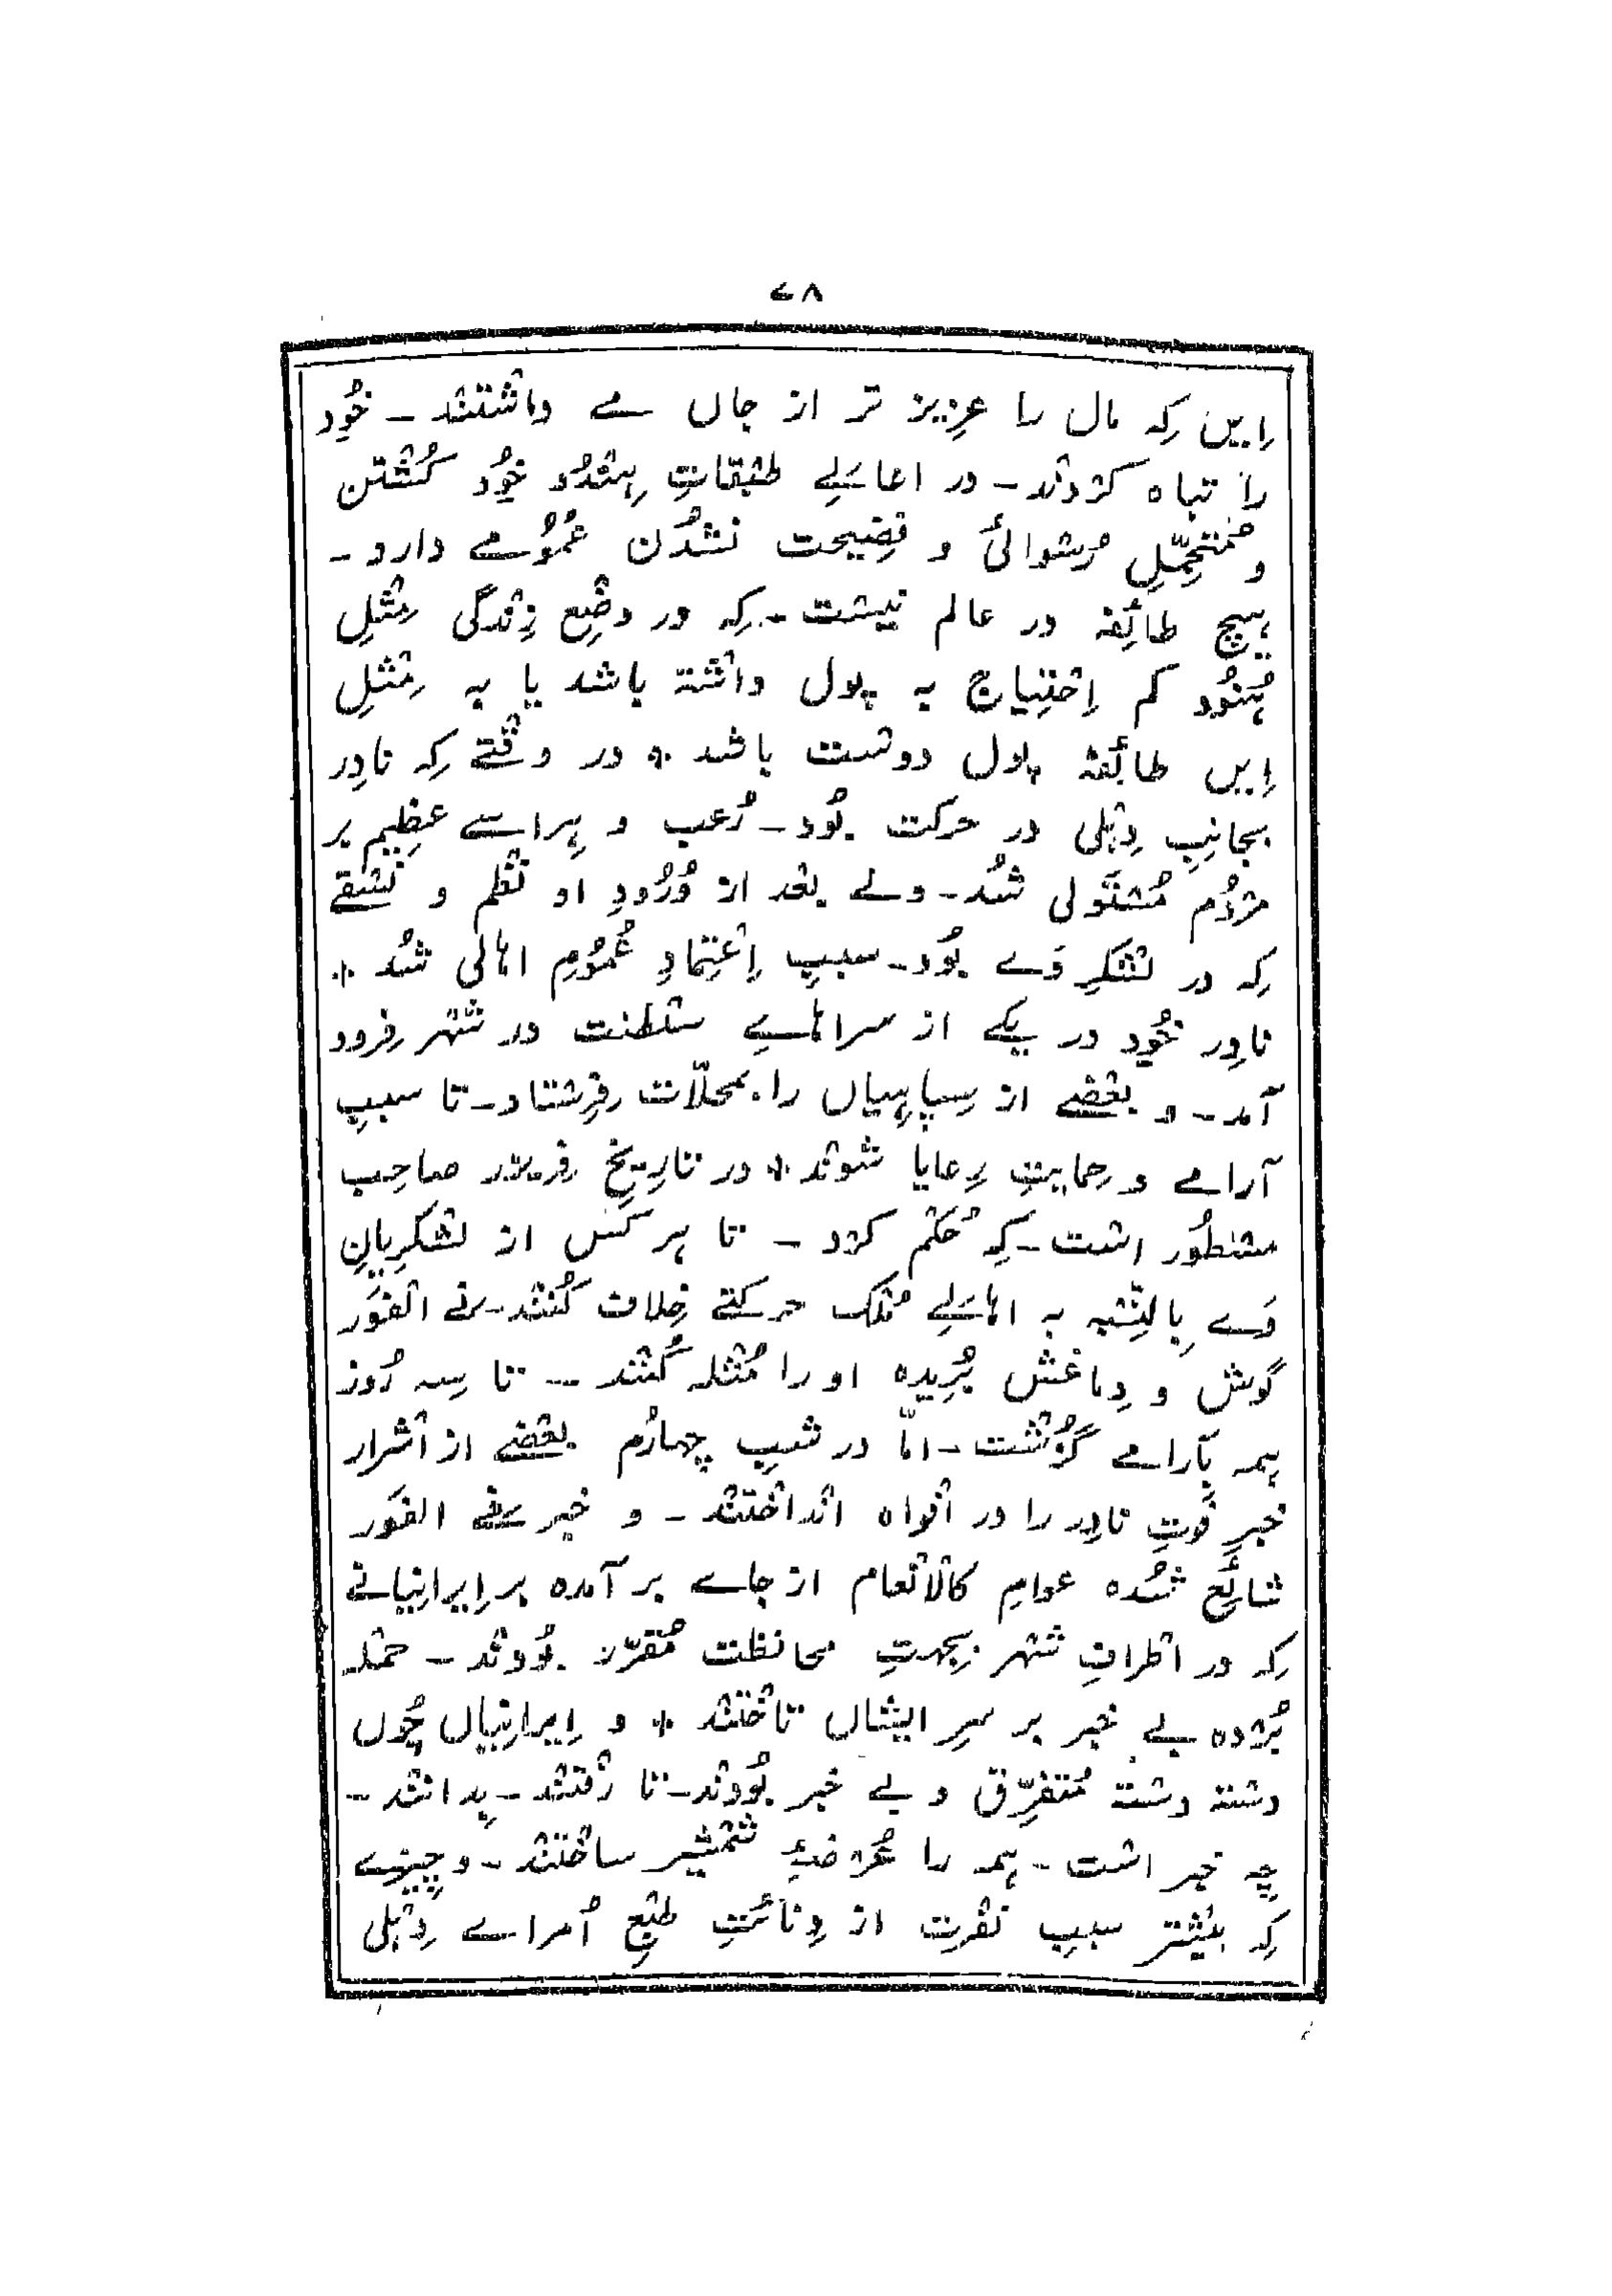 ۷۸
اِیں کِہ مال را عزِیز تر از جاں مے داشتند - خُود
را تباہ کردند - در اعالیٔے طبقاتِ ہِندُو خُود کُشتن
و مُتحمِّلِ رُسوائی و فضِیحت نشُدن عُمُومے دارد -
ہیچ طائِفہ در عالم نیست - کِہ در وضعِ زِندگی مِثلِ
ہُنُود کم اِحتِیاج بہ پول داشتہ باشد یا بہ مِثلِ
اِیں طائِفہ پول دوست باشد * در وقتے کِہ نادِر
بجانِبِ دِہلی در حرکت بُود - رُعب و ہِراسے عظِیم بر
مردُم مُستَولی شُد - ولے بعد از وُرُودِ او نظم و نسقے
کِہ در لشکرِ وَے بُود - سببِ اِعتِمادِ عُمُومِ اہالی شُد *
نادِر خُود در یکے از سراہاے سلطنت در شہر فرود
آمد - و بعضے از سِپاہِیاں را بمحلّات فرِستاد - تا سببِ
آرامے و حِمایتِ رِعایا شوند * در تارِیخِ فریزر صاحِب
مسطُور است - کِہ حُکم کرد - تا ہر کس از لشکرِیانِ
وَے بِالنِّسبہ بہ اہالیٔے مُلک حرکتے خِلاف کُنند - فی الفَور
گوش و دِماغش بُرِیدہ او را مُثلہ کُنند - تا سِہ رُوز
ہمہ بآرامے گُزشت - امّا در شبِ چہارُم بعضے از اشرار
خبرِ فَوتِ نادِر را در افواہ انداختند - و خبر فی الفَور
شائِع شُدہ عوامِ کالانعام از جاے بر آمدہ بر اِیرانِیانے
کِہ در اطرافِ شہر بجہتِ محافظت مُقرّر بُودند - حملہ
بُردہ بے خبر بر سرِ ایشاں تاختند * و اِیرانِیاں چُوں
دستہ دستہ مُتفرِّق و بے خبر بُودند - تا رفتند - بِدانند -
چِہ خبر است - ہمہ را عُرضۂِ شمشیر ساختند - و چِیزے
کِہ بیشتر سببِ نفرت از دِنائتِ طبعِ اُمراے دِہلی